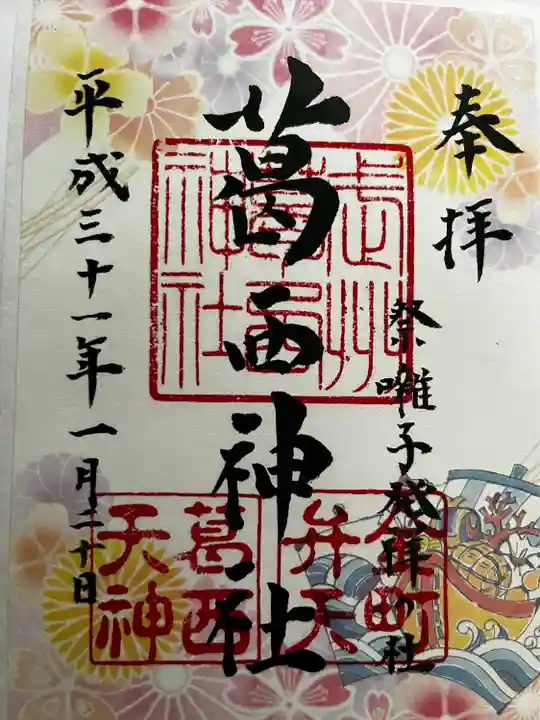 奉拝
祭囃子発祥の社
葛西神社
平成三十一年一月二十日
武州
葛西
神社
金町
弁天
葛西
天神